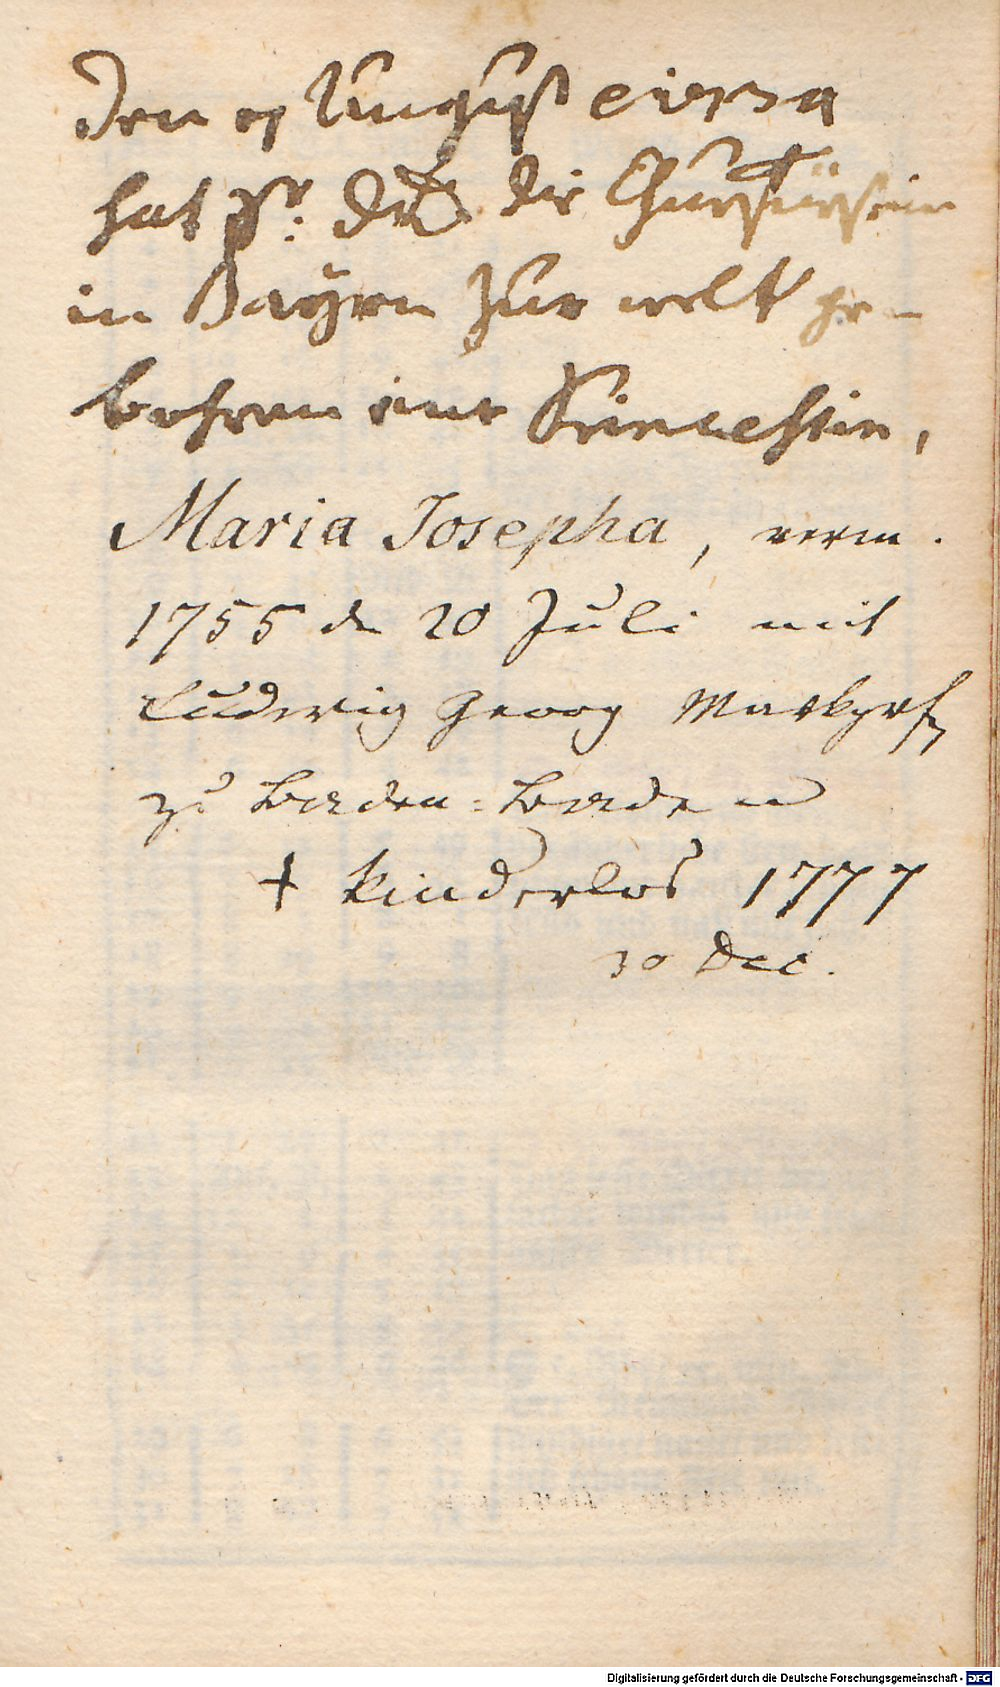 den 7 August circa
hat Ihr. Dr. die Churfürstin
in Bayrn zur welt ge-
bohren eine Princessin,
Maria Josepha, verm.
1755 den 20 Juli mit
Ludwig Georg Markgrf
zu Baden-Baden
† kinderlos 1777
30 Dec.
Digitalisierung gefördert durch die Deutsche Forschungsgemeinschaft - DFG